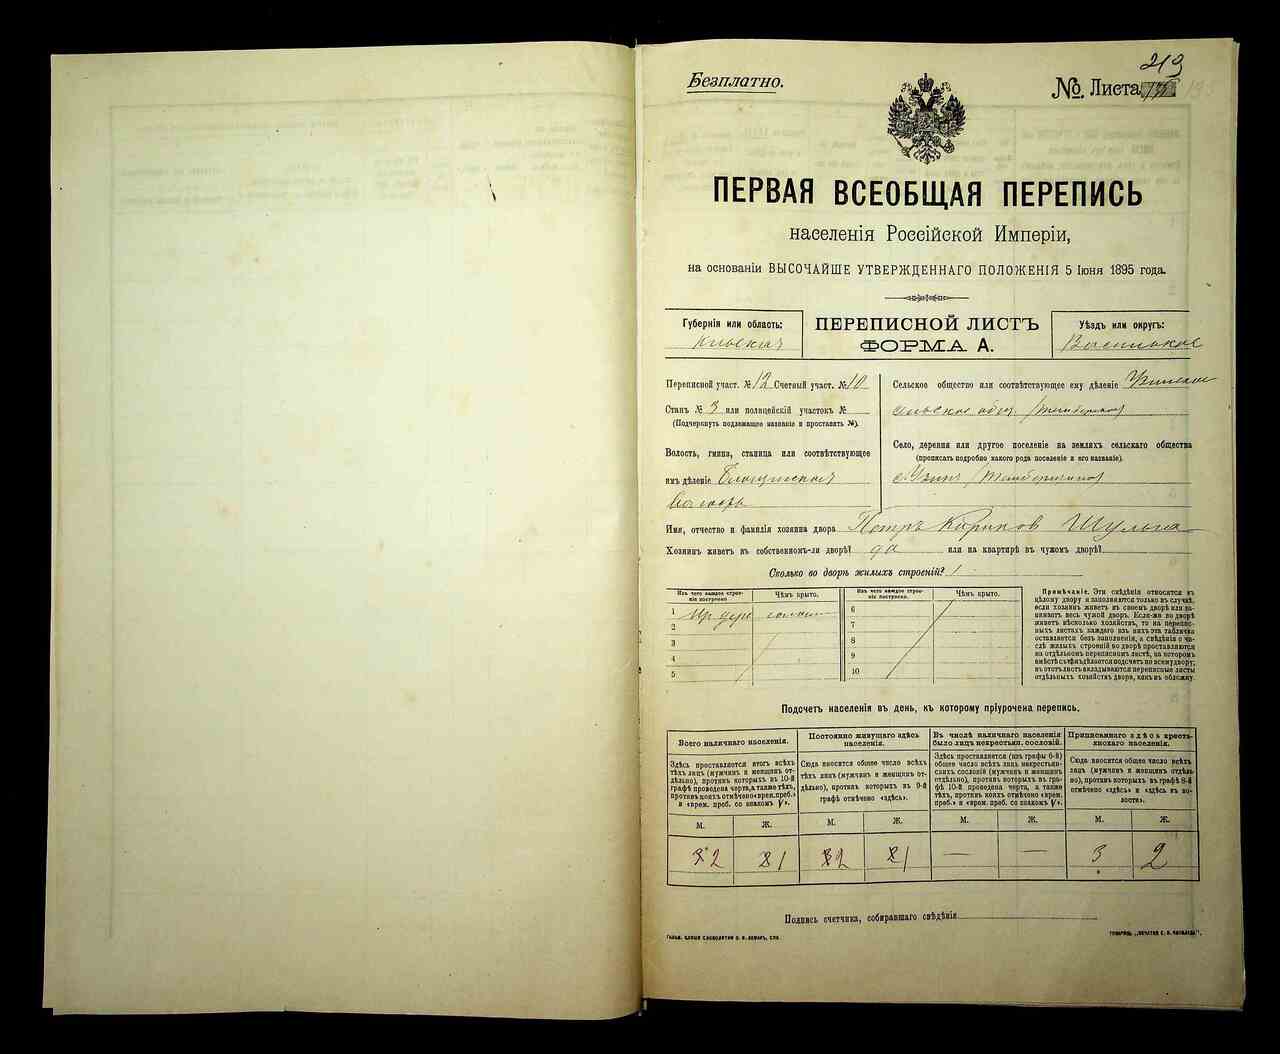 219
Безплатно.
№. Листа
ПЕРВАЯ ВСЕОБЩАЯ ПЕРЕПИСЬ
населенія Россійской Имперіи,
на основаніи ВЫСОЧАЙШЕ УТВЕРЖДЕННАГО ПОЛОЖЕНІЯ 5 Іюня 1895 года.
Губернія или область:
Кіевская
ПЕРЕПИСНОЙ ЛИСТЪ
ФОРМА А.
Уѣздъ или округъ:
Васильков
Переписной участ. № 12 Счетный участ. № 10
Станъ № 3 или полицейскій участокъ №
(Подчеркнуть подлежащее названіе и проставить №).
Волость, гмина, станица или соотвѣтствующее
имъ дѣленіе
волость
Сельское общество или соотвѣтствующее ему дѣленіе Узинское
сельское общ.
Село, деревня или другое поселеніе на земляхъ сельскаго общества
(прописать подробно какого рода поселеніе и его названіе).
с. Узин
Имя, отчество и фамилія хозяина двора Петръ Карпов Шульга
Хозяинъ живетъ въ собственномъ-ли дворѣ? да или на квартирѣ въ чужомъ дворѣ?
Сколько во дворѣ жилыхъ строеній? 1
Изъ чего каждое строеніе построено
Чѣмъ крыто.
Изъ чего каждое строеніе построено.
Чѣмъ крыто.
1 из дере солом
2
3
4
5
6
7
8
9
10
Примѣчаніе. Эти свѣдѣнія относятся къ
цѣлому двору и заполняются только въ случаѣ,
если хозяинъ живетъ въ своемъ дворѣ или за-
нимаетъ весь чужой дворъ. Если-же во дворѣ
живетъ нѣсколько хозяйствъ, то на перепис-
ныхъ листахъ каждаго изъ нихъ эта табличка
оставляется безъ заполненія, а свѣдѣнія о чи-
слѣ жилыхъ строеній во дворѣ проставляются
на отдѣльномъ переписномъ листѣ, на которомъ
вмѣстѣ съ тѣмъ дѣлается подсчетъ по всему двору;
въ этотъ листъ вкладываются переписные листы
отдѣльныхъ хозяйствъ двора, какъ въ обложку.
Подсчетъ населенія въ день, къ которому пріурочена перепись.
Всего наличнаго населенія.
Здѣсь проставляется итогъ всѣхъ
тѣхъ лицъ (мужчинъ и женщинъ от-
дѣльно), противъ которыхъ въ 10-й
графѣ проведена черта, а также тѣхъ,
противъ коихъ отмѣчено «врем. преб.»
и «врем. преб. со знакомъ V».
Постоянно живущаго здѣсь
населенія.
Сюда вносится общее число всѣхъ
тѣхъ лицъ (мужчинъ и женщинъ от-
дѣльно), противъ которыхъ въ 9-й
графѣ отмѣчено «здѣсь».
Въ числѣ наличнаго населенія
было лицъ некрестьян. сословій.
Здѣсь проставляется (изъ графы 6-й)
общее число всѣхъ лицъ некрестьян-
скихъ сословій (мужчинъ и женщинъ
отдѣльно), противъ которыхъ въ гра-
фѣ 10-й проведена черта, а также
тѣхъ, противъ коихъ отмѣчено «врем.
преб.» и «врем. преб. со знакомъ V».
Приписаннаго здѣсь кресть-
янскаго населенія.
Сюда вносится общее число всѣхъ
лицъ (мужчинъ и женщинъ отдѣль-
но), противъ которыхъ въ графѣ 8-й
отмѣчено «здѣсь» и «здѣсь въ во-
лости».
М. Ж. М. Ж. М. Ж. М. Ж.
2 1 2 1 — — 3 2
Подпись счетчика, собиравшаго свѣдѣнія